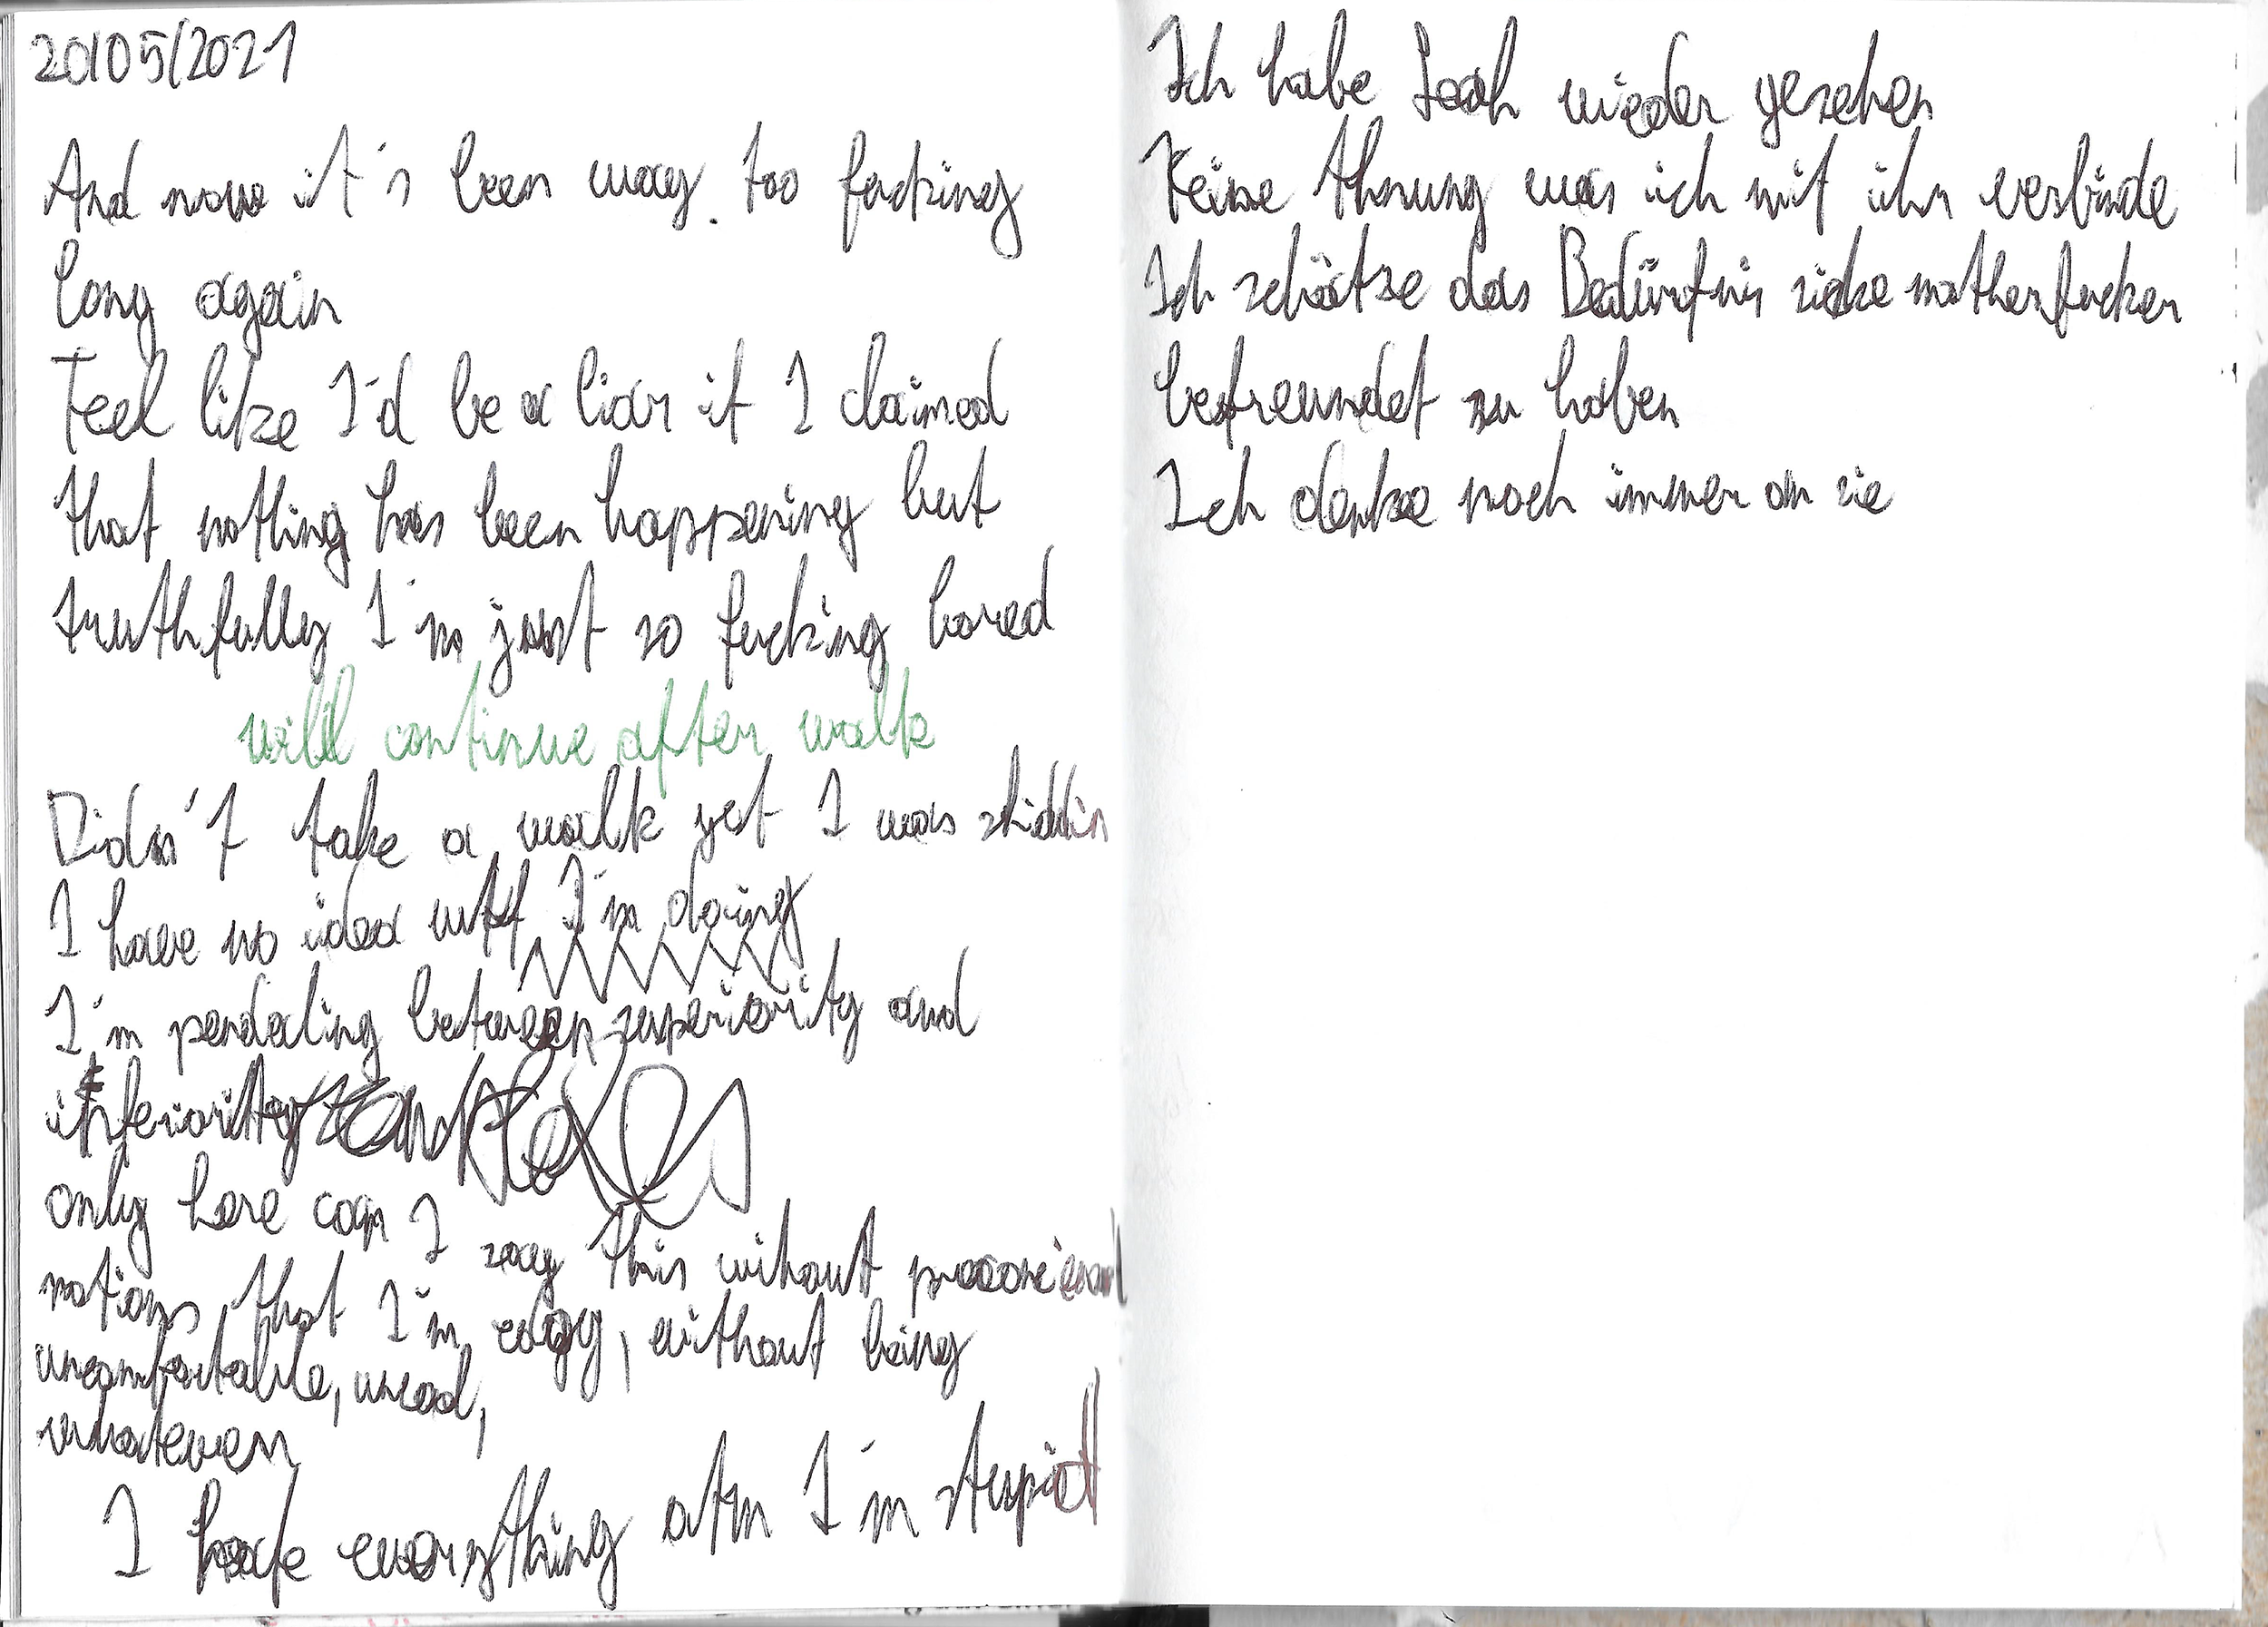 20/05/2021
And now it's been way too fucking
long again
Feel like I'd be a liar if I claimed
that nothing has been happening but
truthfully I'm just so fucking bored
will continue after walk
Didn't take a walk yet I was shiddin
I have no idea wtf I'm doing
I'm pendaling between superiority and
inferiority
only here can I say this wihout
notions that I'm edgy, without being
uncomfortable, weod,
whatever
I hate everything atm I'm stupid
Ich habe Leah wieder gesehen
Keine Ahnung was ich mit ihr verbinde
Ich schätze das Bedürfnis sicke motherfucker
befreundet zu haben
Ich denke noch immer an sie